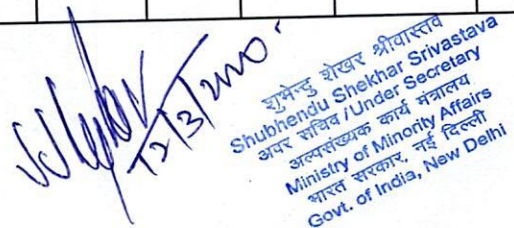 12/3/2020
शुभेन्दु शेखर श्रीवास्तव
Shubhendu Shekhar Srivastava
अवर सचिव / Under Secretary
अल्पसंख्यक कार्य मंत्रालय
Ministry of Minority Affairs
भारत सरकार, नई दिल्ली
Govt. of India, New Delhi